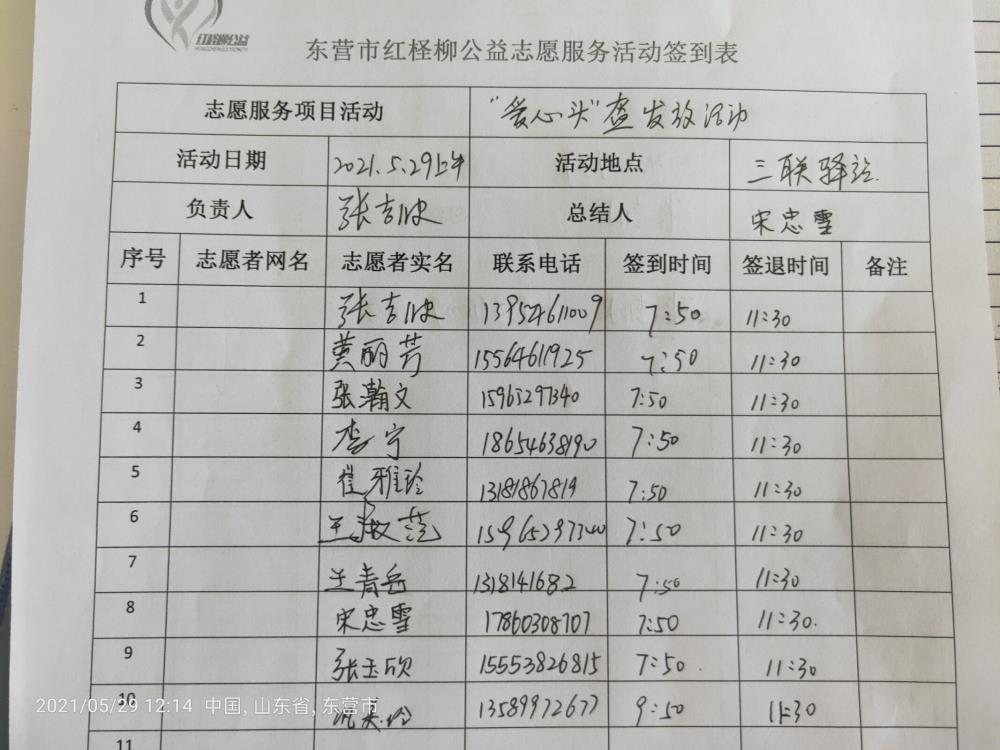 红柽柳公益
东营市红柽柳公益志愿服务活动签到表
志愿服务项目活动 "爱心头"盔发放活动
活动日期 2021.5.29上午 活动地点 三联驿站
负责人 张吉欣 总结人 宋忠雪
序号 志愿者网名 志愿者实名 联系电话 签到时间 签退时间 备注
1 张吉欣 13954611009 7:50 11:30
2 黄丽芳 15564611925 7:50 11:30
3 张瀚文 15965297340 7:50 11:30
4 李宁 18654638190 7:50 11:30
5 崔雅玲 13181867819 7:50 11:30
6 15965297340 7:50 11:30
7 王青岳 1318141682 7:50 11:30
8 宋忠雪 17860308707 7:50 11:30.
9 张玉欣 15553826815 7:50. 11:30
10 13589972677 9:50 11:30
11
2021/05/29 12:14 中国,山东省,东营市